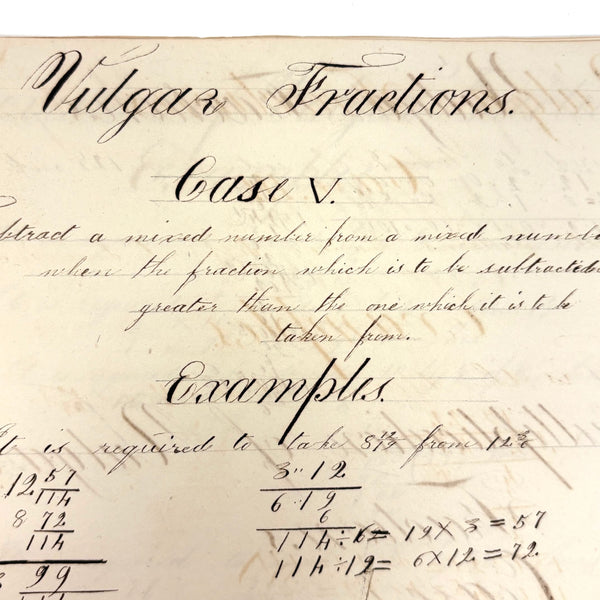 Vulgar Fractions.
Case V.
btract a mixed number from a mixed numb
when the fraction which is to be subtracted
greater than the one which it is to be
taken from.
Examples.
It is required to take 8 12/19 from 12 3/6
12 57/114
8 72/114
99
3 " 12
6 . 19
6
114÷6= 19 × 3 = 57
114÷19= 6 × 12 = 72